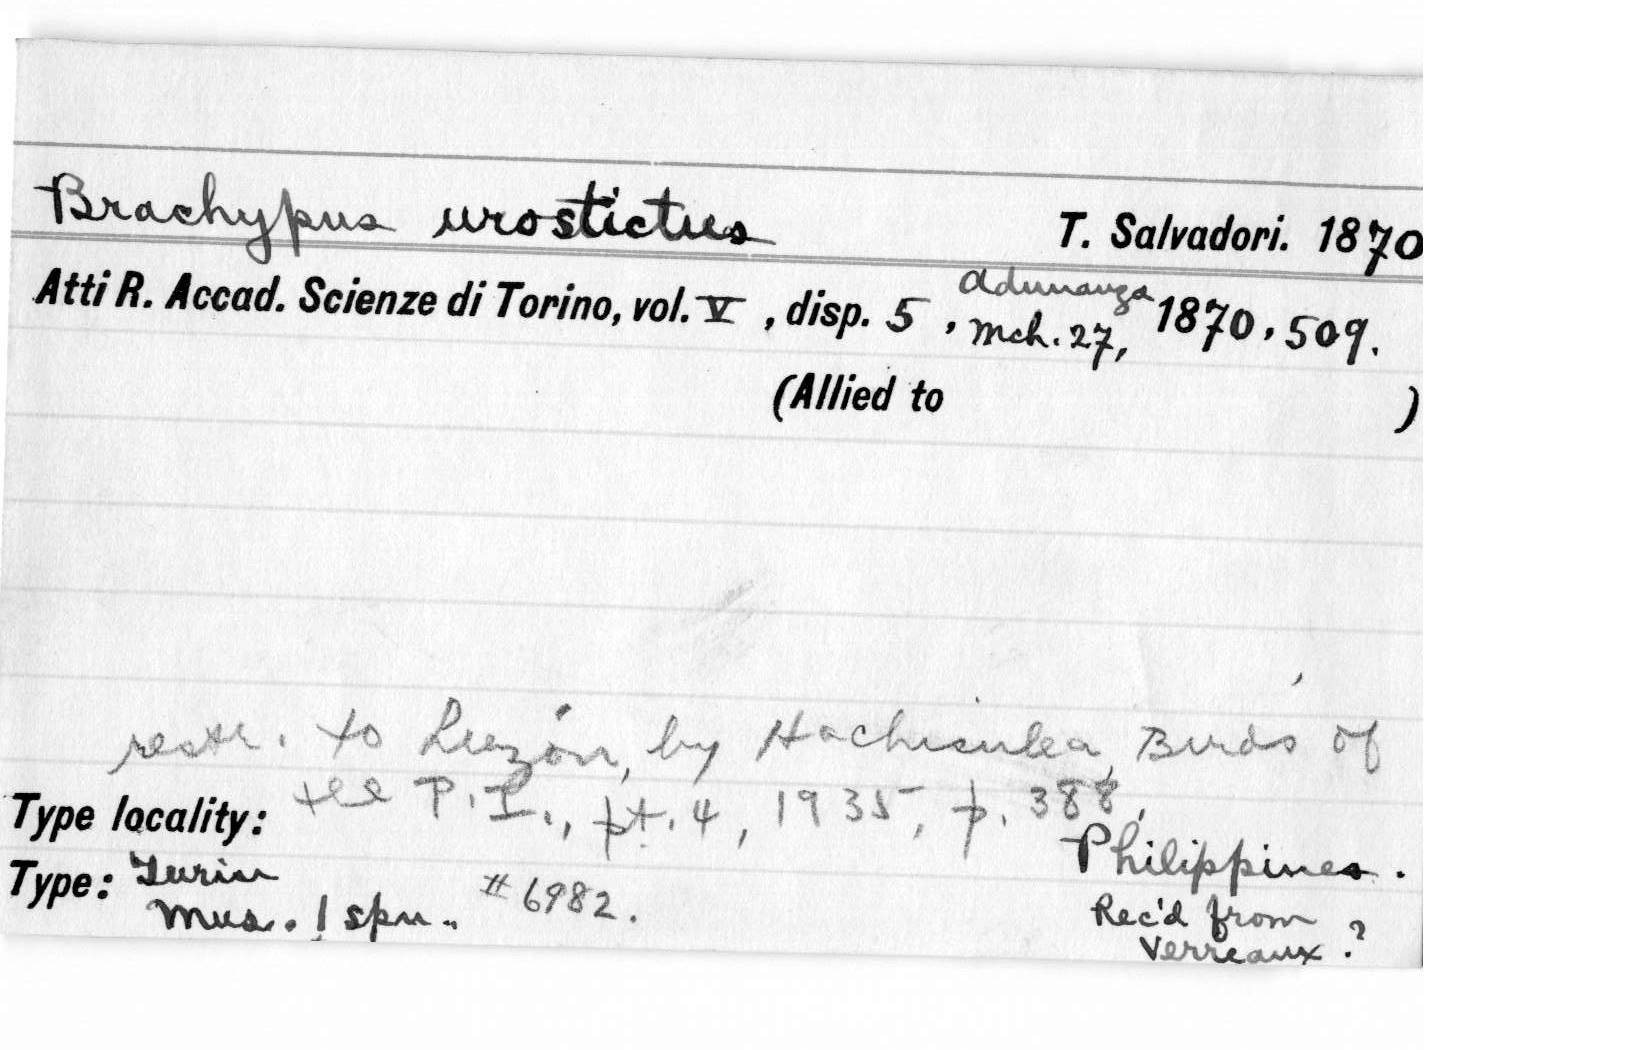 Brachypus urostictus T. Salvadori. 1870
Atti R. Accad. Scienze di Torino, vol. V, disp. 5, Adunanza Mch. 27, 1870, 509.
(Allied to )
restr. to Luzón, by Hachisuka, Birds of
the P.I., pt. 4, 1935, p. 388,
Type locality: Philippines.
Type: Turin Mus. 1 spn. #6982.
Rec'd from
Verreaux?